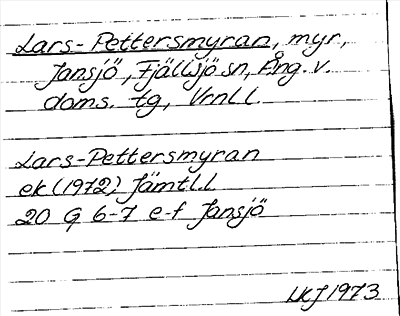 Lars-Pettersmyran, myr,
Jansjö, Fjällsjö sn, Ång. v.
doms. tg, Vrnl l.
Lars-Pettersmyran
ek (1972) Jämtl. l
20 G 6-7 e-f Jansjö
LKJ 1973